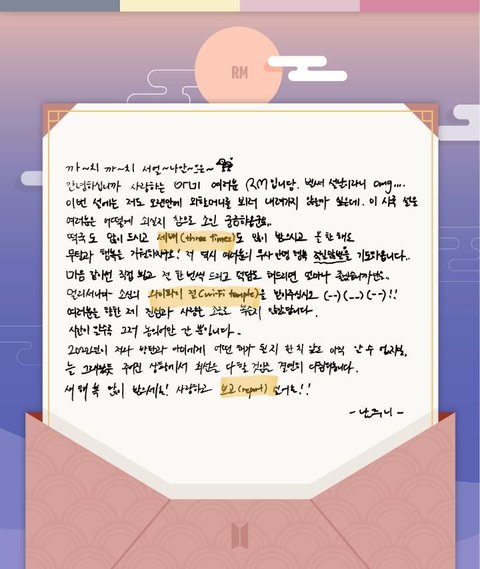 RM
까~치 까~치 서얼~나알~은~
안녕하십니까 사랑하는 아미 여러분 RM입니다. 벌써 설날이라니 omg....
이번 설에는 저도 오랜만에 외할머니를 뵈러 내려가지 않을까 싶은데. 이 시국 설을
여러분은 어떻게 쇠실지 참으로 소인 궁금하군요..
떡국도 많이 드시고 세배(three times)도 많이 받으시고 올 한 해도
무탈과 행복을 기원하세요! 저 역시 여러분의 무사 안녕 행복 기도하옵니다..
마음 같아선 직접 뵙고 전 한 번씩 드리고 덕담도 해드리면 얼마나 좋겠냐만은..
멀리서나마 소인의 와이파이 절(wi-fi temple)을 받아주십시오 (--) (__) (--) !!
여러분을 향한 제 진심과 사랑은 소으로 녹슬지 않았답니다.
시간이 갈수록 그저 늘어가기만 할 뿐입니다..
2022년이 저와 방탄과 아미에게 어떤 해가 될지 한 치 앞도 아직 알 수 없지만,
늘 그래왔듯 주어진 상황에서 최선을 다할 것임은 분명히 다짐해봅니다.
새해 복 많이 받으세요! 사랑하고 보고(report) 싶어요!!
- 남주니 -